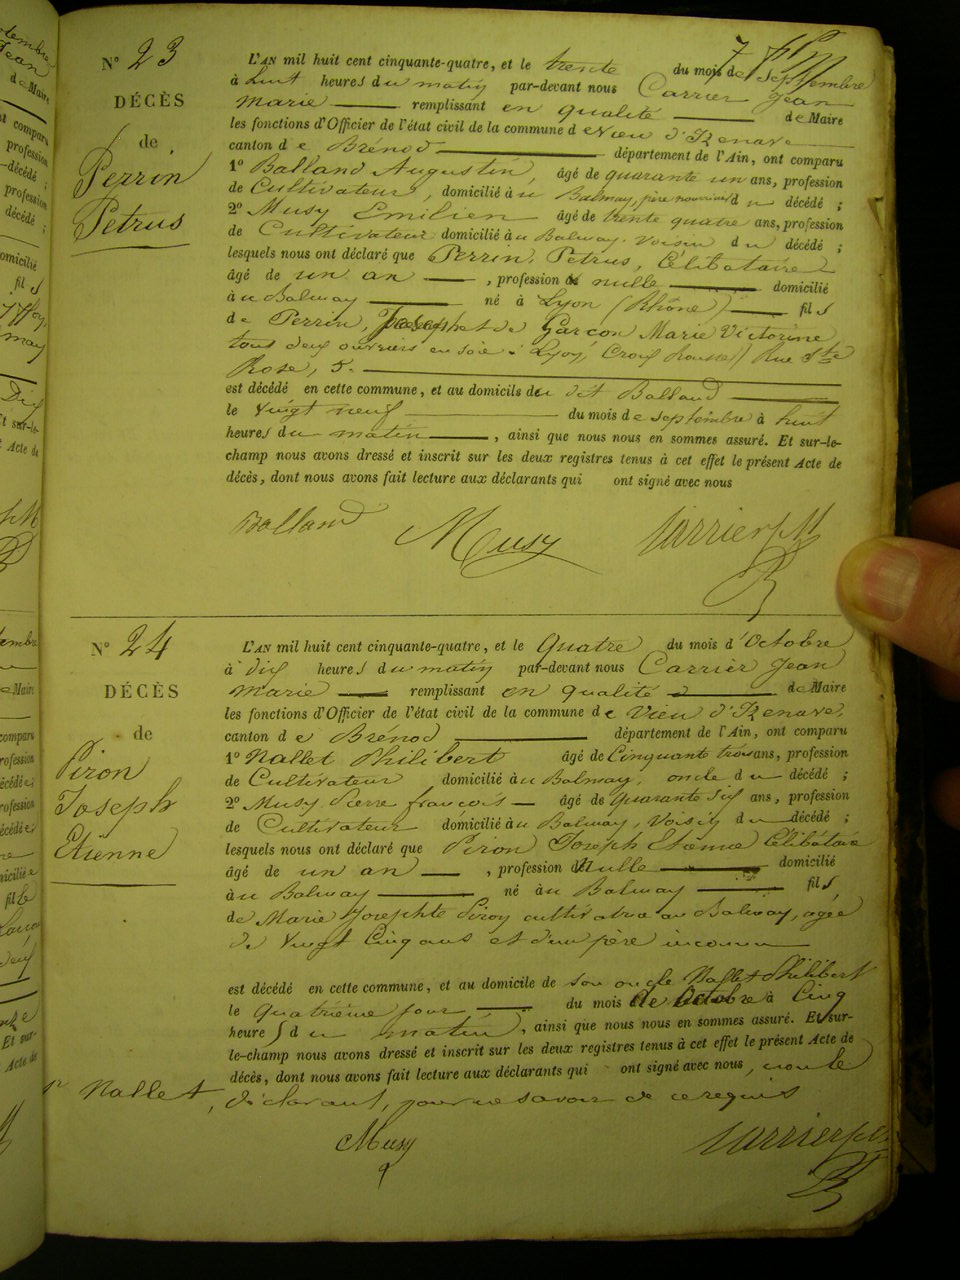 N° 23
DÉCÈS
de
Perrin
Petrus
L'AN mil huit cent cinquante-quatre, et le trente du mois de septembre
à huit heures du matin par-devant nous Carrier Jean
Marie remplissant en qualité de Maire
les fonctions d'Officier de l'état civil de la commune de Vieu d'Izenave
canton de Brénod département de l'Ain, ont comparu
1° Balland Augustin, âgé de quarante un ans, profession
de Cultivateur, domicilié au Balmay, père nourricier du décédé ;
2° Musy Emilien âgé de trente quatre ans, profession
de Cultivateur domicilié au Balmay. voisin du décédé ;
lesquels nous ont déclaré que Perrin, Petrus, Célibataire
âgé de un an , profession de nulle domicilié
à au Balmay né à Lyon (Rhône) fils
de Perrin, Joseph et de Garçon Marie Victorine
tous deux ouvriers en soie à Lyon, Croix Rousse, Rue Ste
Rose, 5.
est décédé en cette commune, et au domicile du dit Balland
le vingt neuf du mois de septembre à huit
heures du matin , ainsi que nous nous en sommes assuré. Et sur-le-
champ nous avons dressé et inscrit sur les deux registres tenus à cet effet le présent Acte de
décès, dont nous avons fait lecture aux déclarants qui ont signé avec nous
Balland Musy Carrier J M
N° 24
DÉCÈS
de
Piron
Joseph
Etienne
L'AN mil huit cent cinquante-quatre, et le Quatre du mois d'Octobre
à dix heures du matin par-devant nous Carrier Jean
Marie remplissant en qualité de Maire
les fonctions d'Officier de l'état civil de la commune de Vieu d'Izenave,
canton de Brénod département de l'Ain, ont comparu
1° Nallet Philibert âgé de Cinquante trois ans, profession
de Cultivateur domicilié au Balmay, oncle du décédé ;
2° Musy Pierre françois âgé de quarante six ans, profession
de Cultivateur domicilié au Balmay, Voisin du décédé ;
lesquels nous ont déclaré que Piron Joseph Etienne Célibataire
âgé de un an , profession de Nulle domicilié
à au Balmay né au Balmay fils
de Marie Josephte Piron cultivatrice au Balmay, agée
de vingt Cinq ans et d'un père inconnu
est décédé en cette commune, et au domicile de son oncle Nallet Philibert
le Quatrième jour du mois de Octobre à Cinq
heures du matin, ainsi que nous nous en sommes assuré. Et sur-
le-champ nous avons dressé et inscrit sur les deux registres tenus à cet effet le présent Acte de
décès, dont nous avons fait lecture aux déclarants qui ont signé avec nous, non le
Nallet, déclarant, pour ne savoir de ce requis
Musy Carrier